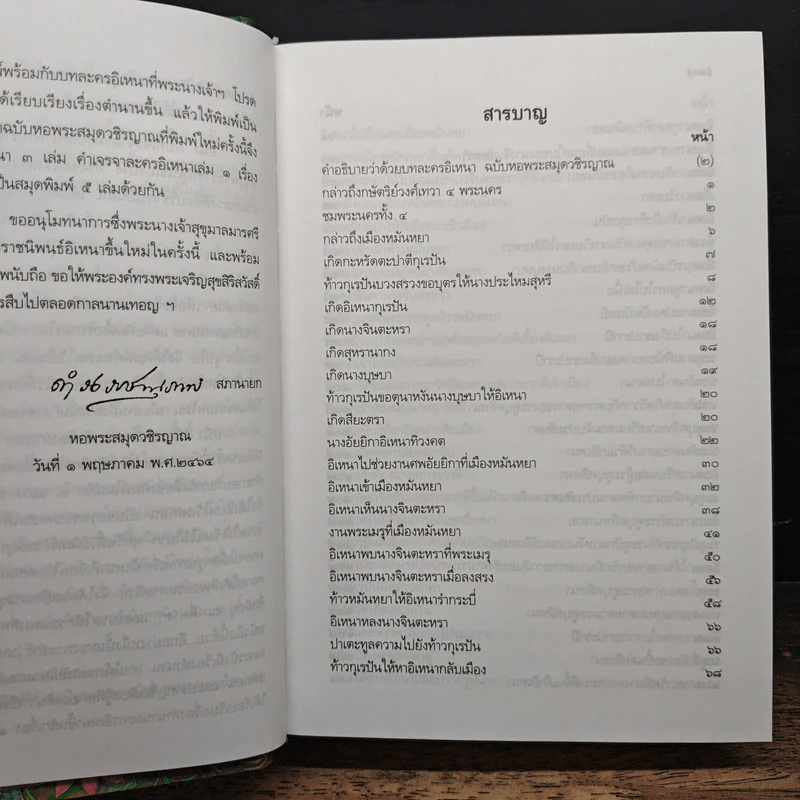 พร้อมกับบทละครอิเหนาที่พระนางเจ้าฯ โปรด
ด้เรียบเรียงเรื่องตำนานขึ้น แล้วให้พิมพ์เป็น
ฉบับหอพระสมุดวชิรญาณที่พิมพ์ใหม่ครั้งนี้จึง
นา ๓ เล่ม คำเจรจาละครอิเหนาเล่ม ๑ เรื่อง
ป็นสมุดพิมพ์ ๕ เล่มด้วยกัน
ขออนุโมทนาการซึ่งพระนางเจ้าสุขุมาลมารศรี
ราชนิพนธ์อิเหนาขึ้นใหม่ในครั้งนี้ และพร้อม
พนับถือ ขอให้พระองค์ทรงพระเจริญสุขสิริสวัสดิ์
รสืบไปตลอดกาลนานเทอญ ฯ
สภานายก
หอพระสมุดวชิรญาณ
วันที่ ๑ พฤษภาคม พ.ศ.๒๔๖๔
สารบาญ
หน้า
คำอธิบายว่าด้วยบทละครอิเหนา ฉบับหอพระสมุดวชิรญาณ (๒)
กล่าวถึงกษัตริย์วงศ์เทวา ๔ พระนคร ๑
ชมพระนครทั้ง ๔ ๒
กล่าวถึงเมืองหมันหยา ๖
เกิดกะหรัดตะปาตีกุเรปัน ๗
ท้าวกุเรปันบวงสรวงขอบุตรให้นางประไหมสุหรี ๘
เกิดอิเหนากุเรปัน ๑๒
เกิดนางจินตะหรา ๑๘
เกิดสุหรานากง ๑๘
เกิดนางบุษบา ๑๙
ท้าวกุเรปันขอตุนาหงันนางบุษบาให้อิเหนา ๒๐
เกิดสียะตรา ๒๐
นางอัยยิกาอิเหนาทิวงคต ๒๒
อิเหนาไปช่วยงานศพอัยยิกาที่เมืองหมันหยา ๓๐
อิเหนาเข้าเมืองหมันหยา ๓๒
อิเหนาเห็นนางจินตะหรา ๓๘
งานพระเมรุที่เมืองหมันหยา ๔๑
อิเหนาพบนางจินตะหราที่พระเมรุ ๕๐
อิเหนาพบนางจินตะหราเมื่อลงสรง ๕๖
ท้าวหมันหยาให้อิเหนารำกระบี่ ๕๘
อิเหนาหลงนางจินตะหรา ๖๖
ปาเตะทูลความไปยังท้าวกุเรปัน ๖๖
ท้าวกุเรปันให้หาอิเหนากลับเมือง ๖๘